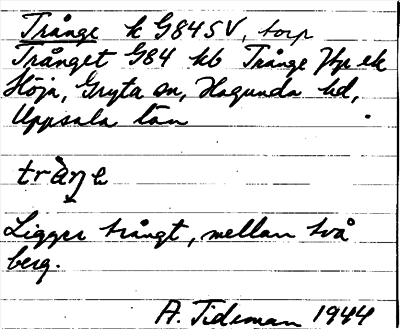 Trånge k G84SV, torp
Trånget G84 kb Trånge Jfp ek
Höja, Gryta sn, Hagunda hd,
Uppsala län
tràŋe
Ligger trångt, mellan två
berg.
A. Tideman 1944